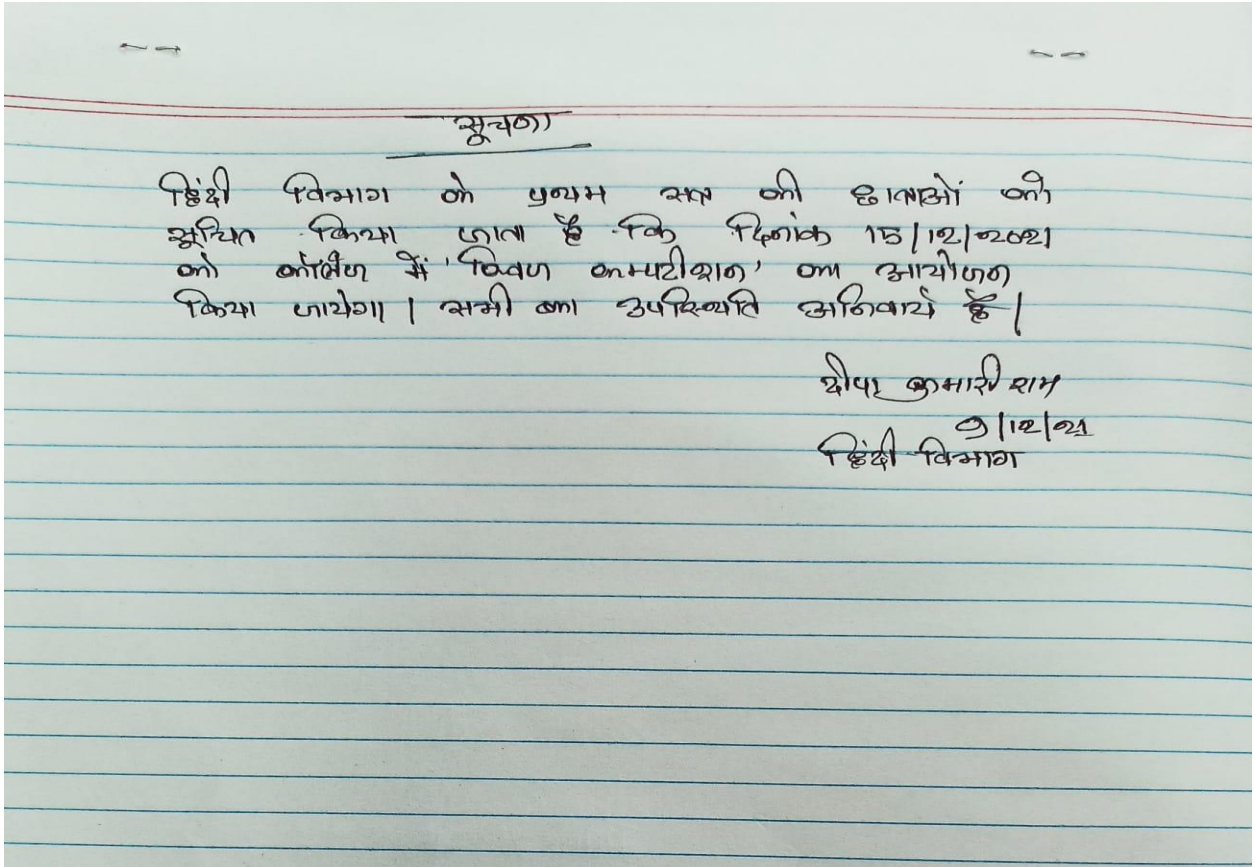 सूचना
हिंदी विभाग के प्रथम सत्र की छात्राओं को
सूचित किया जाता है कि दिनांक 15/12/2021
को कॉलेज में 'क्विज कम्पटीशन' का आयोजन
किया जायेगा। सभी का उपस्थिति अनिवार्य है।
दीपा कुमारी राम
9/12/21
हिंदी विभाग